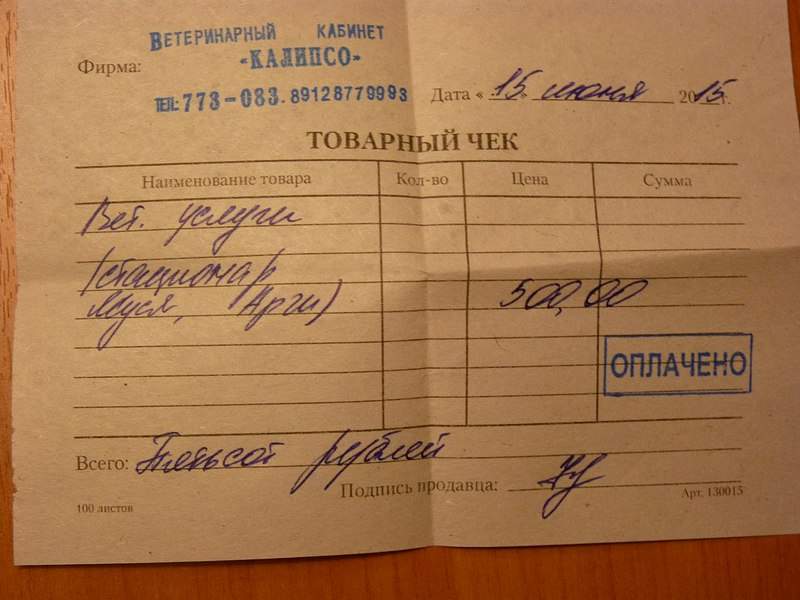 ВЕТЕРИНАРНЫЙ КАБИНЕТ
Фирма: «КАЛИПСО»
ТЕЛ: 773-083. 89128779993
Дата « 15 » июня 2015 г.
ТОВАРНЫЙ ЧЕК
Наименование товара Кол-во Цена Сумма
Вет. услуги
(стационар
Муся, Арги) 500,00
ОПЛАЧЕНО
Всего: Пятьсот рублей
Подпись продавца:
100 листов Арт. 130015